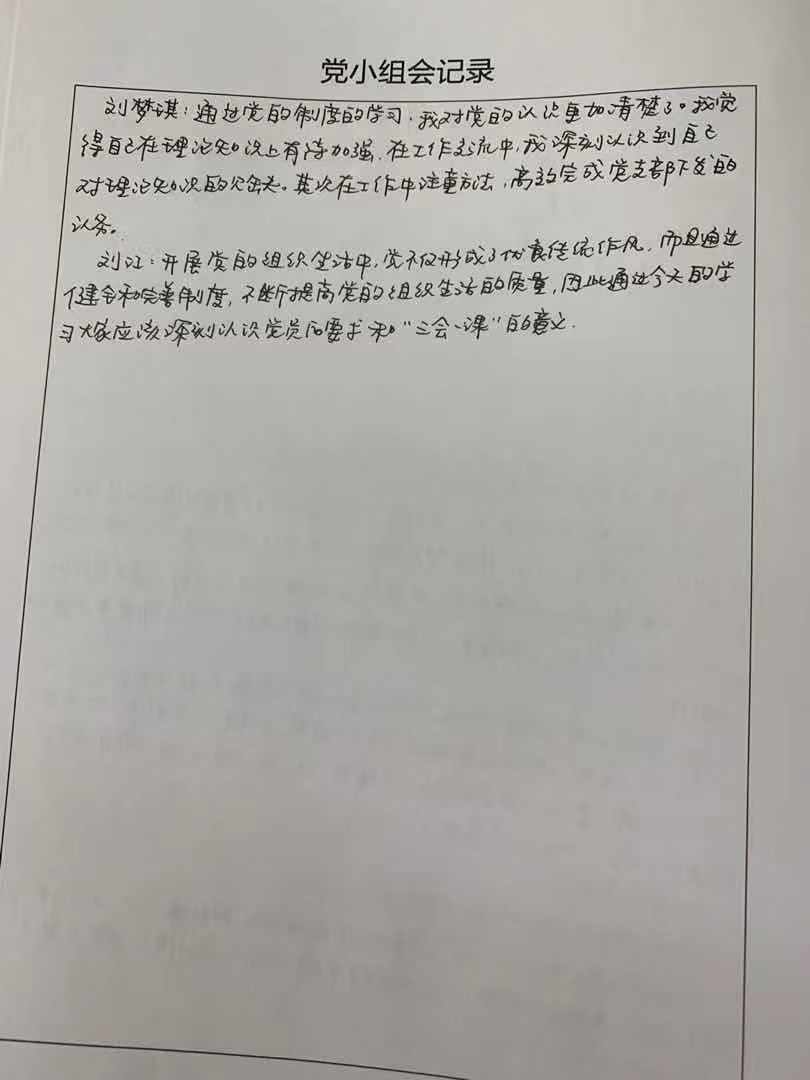 党小组会记录
刘梦琪：通过党的制度的学习，我对党的认识更加清楚了。我觉
得自己在理论知识上有待加强，在工作交流中，我深刻认识到自己
对理论知识的欠缺。其次在工作中注重方法，高效完成党支部下发的
认务。
刘江：开展党的组织生活中，党不仅形成了优良传统作风，而且通过
健全和完善制度，不断提高党的组织生活的质量，因此通过今天的学
习大家应该深刻认识党员的要求和“三会一课”的意义.